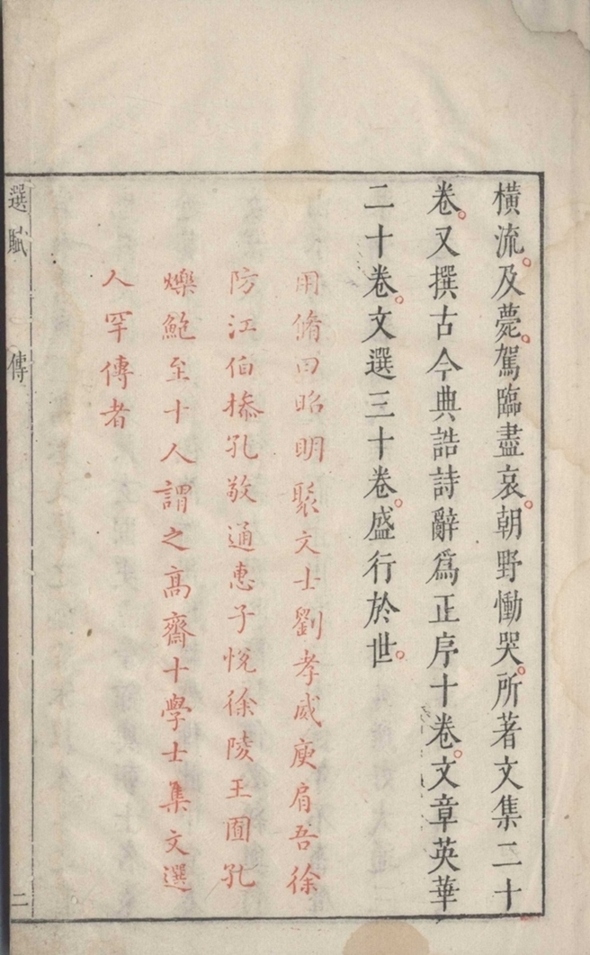 橫流。及薨。駕臨盡哀。朝野慟哭。所著文集二十
卷。又撰古今典誥詩辭爲正序十卷。文章英華
二十卷。文選三十卷。盛行於世。
用脩曰昭明聚文士劉孝威庾肩吾徐
防江伯搖孔敬通惠子悅徐陵王囿孔
爍鮑至十人謂之高齋十學士集文選
人罕傳者
選賦 傳 二